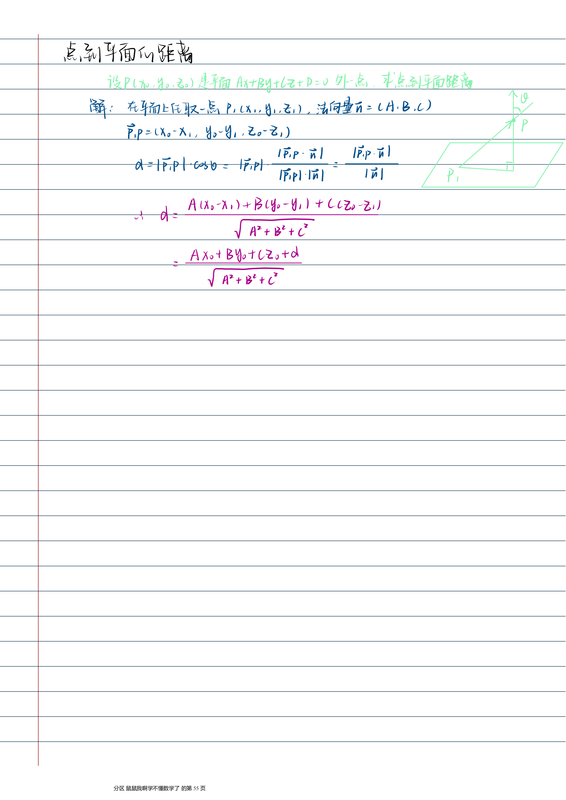 点到平面的距离
设P(x₀,y₀,z₀)是平面Ax+By+Cz+D=0外一点，求点到平面距离
解：在平面上任取一点P₁(x₁,y₁,z₁)，法向量n⃗=(A,B,C)
P₁P=(x₀-x₁, y₀-y₁, z₀-z₁)
d=|P₁P|·cosθ=|P₁P|·|P₁P·n⃗|/|P₁P|·|n⃗|=|P₁P·n⃗|/|n⃗|
∴ d=A(x₀-x₁)+B(y₀-y₁)+C(z₀-z₁)/√A²+B²+C²
=Ax₀+By₀+Cz₀+d/√A²+B²+C²
θ
P
P₁
分区 鼠鼠我啊学不懂数学了 的第 55 页